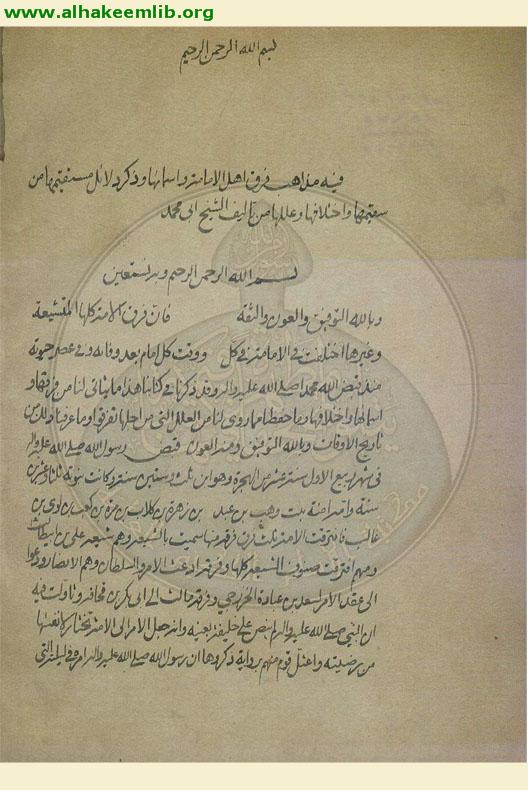 www.alhakeemlib.org
بسم الله الرحمن الرحيم
فيه مذاهب فرق اهل الامامة واسمائها وذكر دلائل مستقيمها من
سقيمها واختلافها وعللها من تاليف الشيخ ابي محمد
بسم الله الرحمن الرحيم وبه نستعين
وبالله التوفيق والعون والثقة فان فرق الامة كلها المتشيعة
وغيرها اختلفت في الامامة في كل وقت كل امام بعد وفاته وفي عصر حيوته
منذ قبض الله محمدا صلى الله عليه واله وقد ذكرنا في كتابنا هذا ما يتاتى لنا من فرقها و
اسمائها واختلافها وما حفظنا مما روى لنا من العلل التي من اجلها تفرقوا وما عرفنا في ذلك من
تاريخ الاوقات وبالله التوفيق ومنه العون قبض رسول الله صلى الله عليه واله
في شهر ربيع الاول سنة عشر من الهجرة وهو ابن ثلث وستين سنة وكانت نبوته ثلثا وعشرين
سنة وامه امنة بنت وهب بن عبد بن زهرة بن كلاب بن مرة بن كعب بن لوى بن
غالب فافترقت الامة ثلث فرق فرقة منها سميت بالشيعة وهم شيعة على بن ابيطالب
ومنهم افترقت صنوف الشيعة كلها وفرقة ادعت الامر والسلطان وهم الانصار ودعوا
الى عقد الامر لسعد بن عبادة الخزرجي وفرقة مالت الى ابي بكر بن قحافة وتاولت فيه
ان النبي صلى الله عليه واله لم ينص على خليفة بعينه وانه جعل الامر الى الامة تختار لانفسها
من رضيته واعتل قوم منهم برواية ذكروها ان رسول الله صلى الله عليه واله امره في ليلته التي